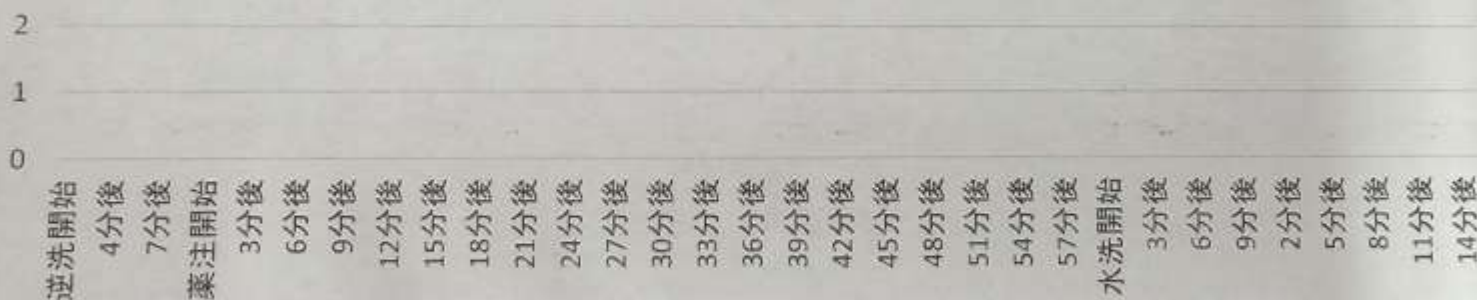 2
1
0
逆洗開始
4分後
7分後
薬注開始
3分後
6分後
9分後
12分後
15分後
18分後
21分後
24分後
27分後
30分後
33分後
36分後
39分後
42分後
45分後
48分後
51分後
54分後
57分後
水洗開始
3分後
6分後
9分後
2分後
5分後
8分後
11分後
14分後